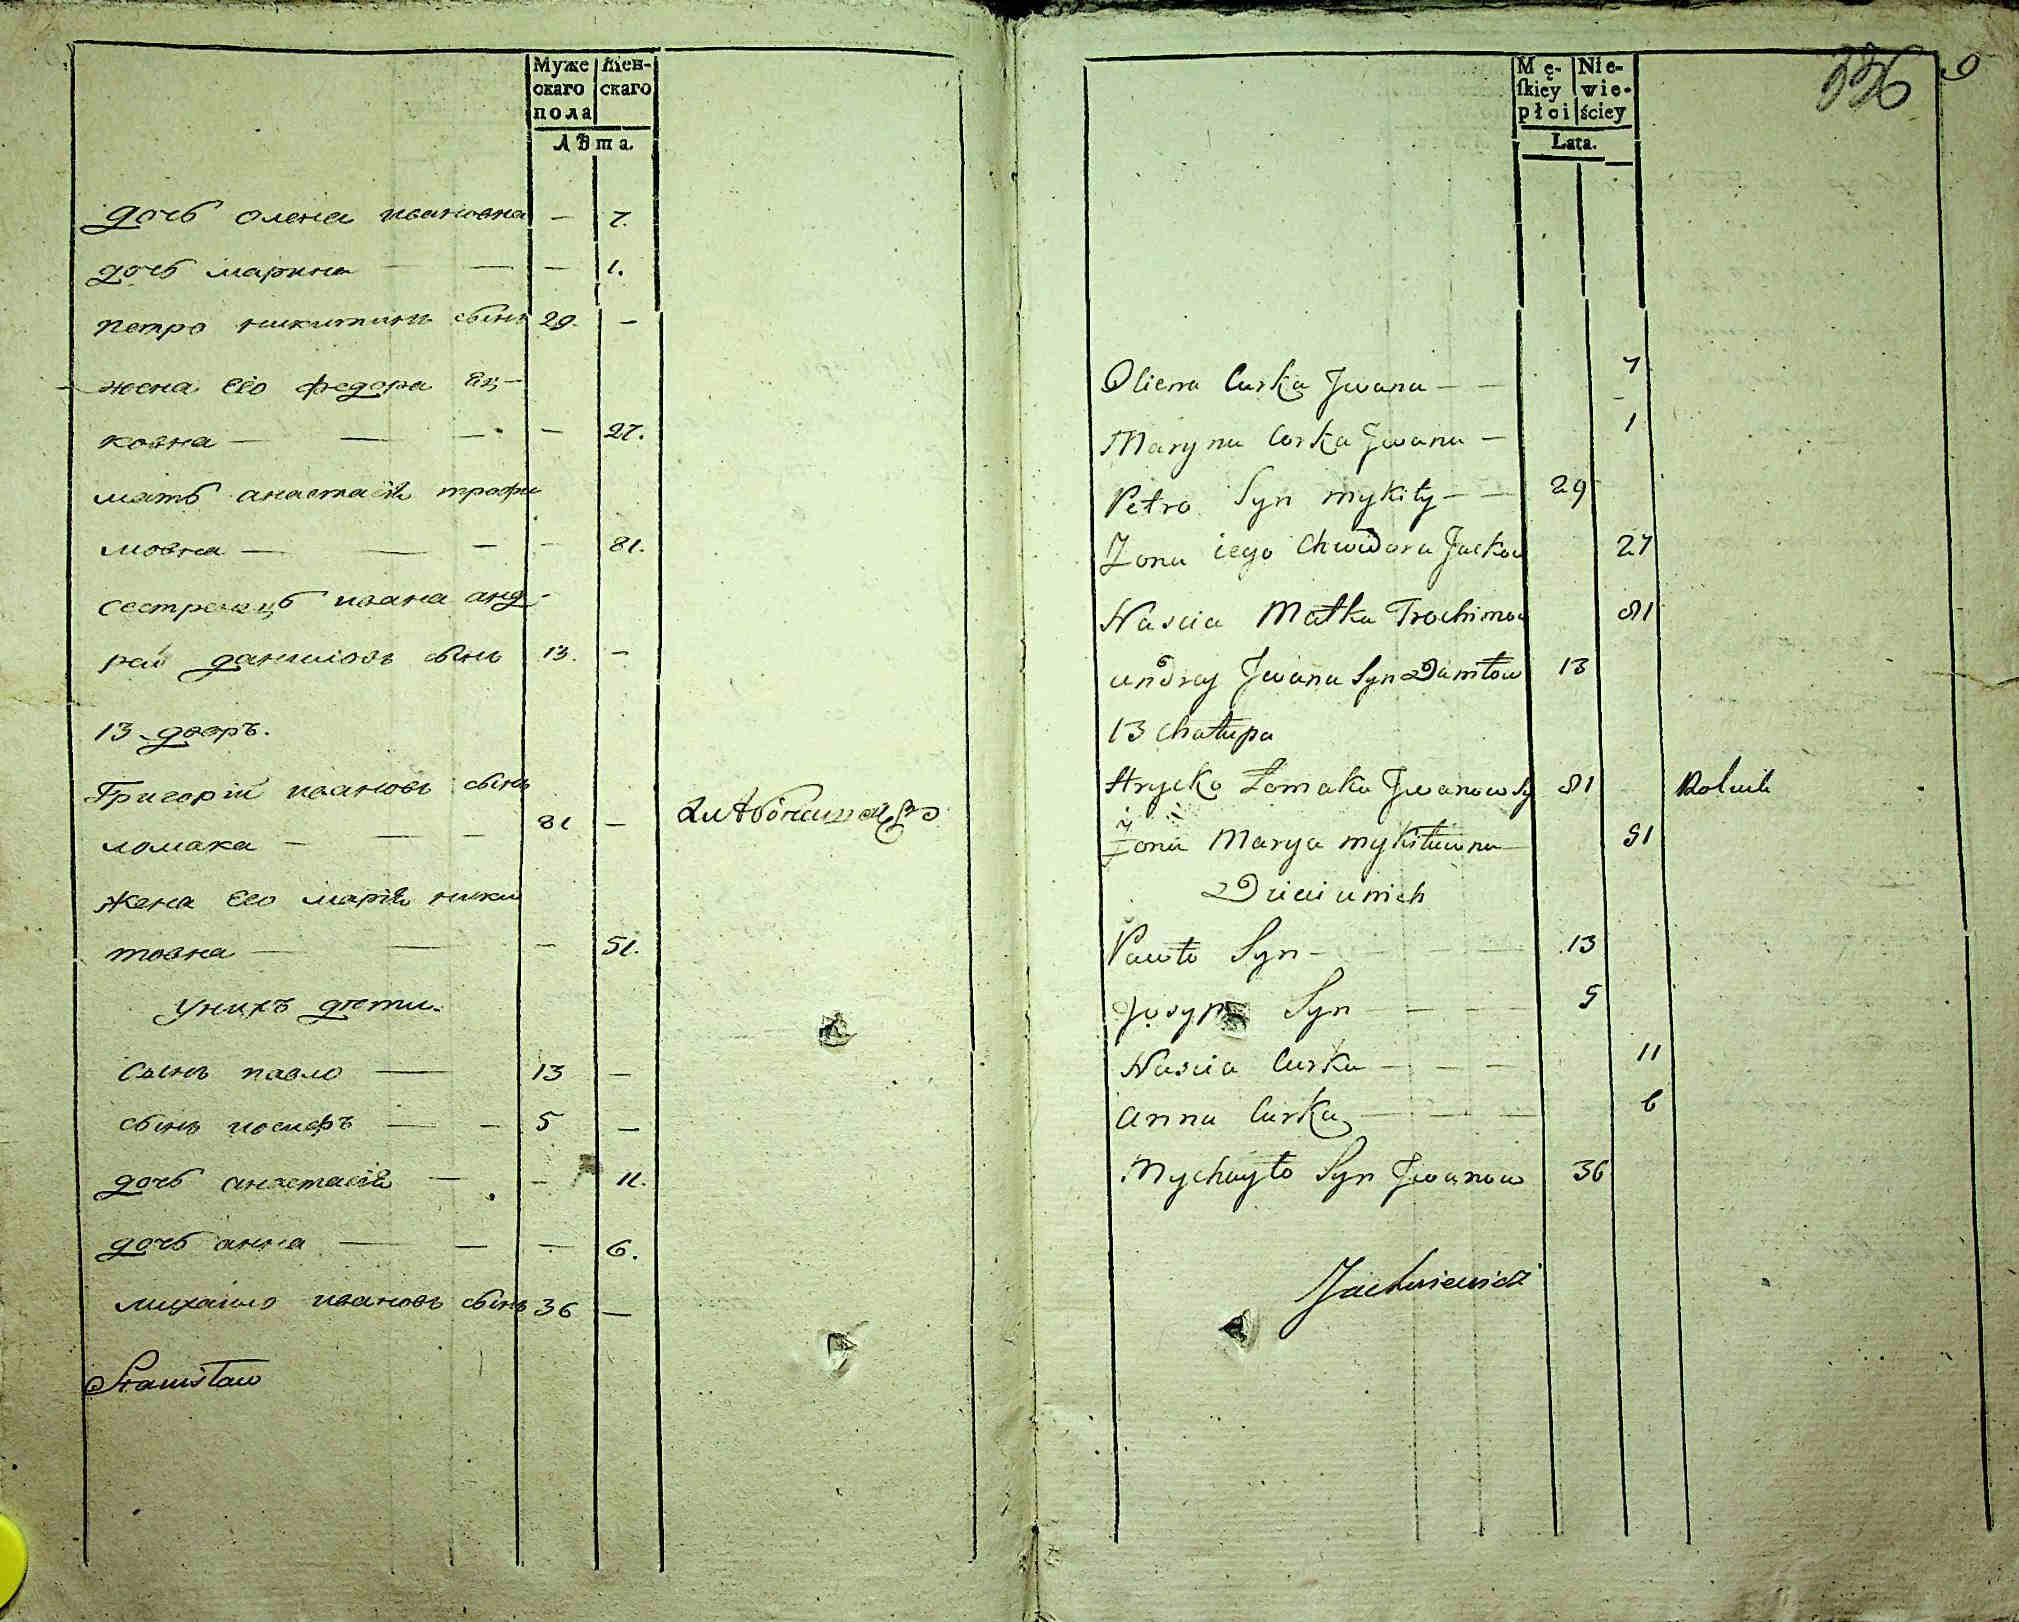 Муже Жен-
скаго скаго
пола
Лѣта.
дочь олена ивановна — 7.
дочь марина — — — 1.
петро никитинъ сынъ 29. —
жена его федора яц-
ковна — — — — 27.
мать анастасія трофи
мовна — — — — 81.
сестренецъ ивана анд-
рей даниловъ сынъ 13. —
13. дворъ.
Григорій ивановъ сынъ
ломака — — — 81 —
жена его марія ники
товна — — — 51.
у нихъ дѣти.
сынъ павло — 13 —
сынъ иосифъ — — 5 —
дочь анастасія — — 11.
дочь анна — — — 6.
михайло ивановъ сынъ 36 —
Stanisław
336 9
Mę- Nie-
ſkiey wie-
płci ściey
Lata.
Oliena Curka Jwana — — 7
Maryna Corka Jwana — 1
Petro Syn mykity — — 29
Zona iego Chwedora Jackow 27
Nascia Matka Trochimow 81
andrey Jwana Syn Daniłow 13
13 chałupa
Hrycko Łomaka Jwanow Sy 81 Rolnik
żona Marya mykitiwna — 51
Dzieci u nich
Pawło Syn — 13
Josyp Syn — — — 5
Nascia Curka — — — 11
anna Curka — — — 6
Mychayło Syn Jwanow 36
Jackiewicz